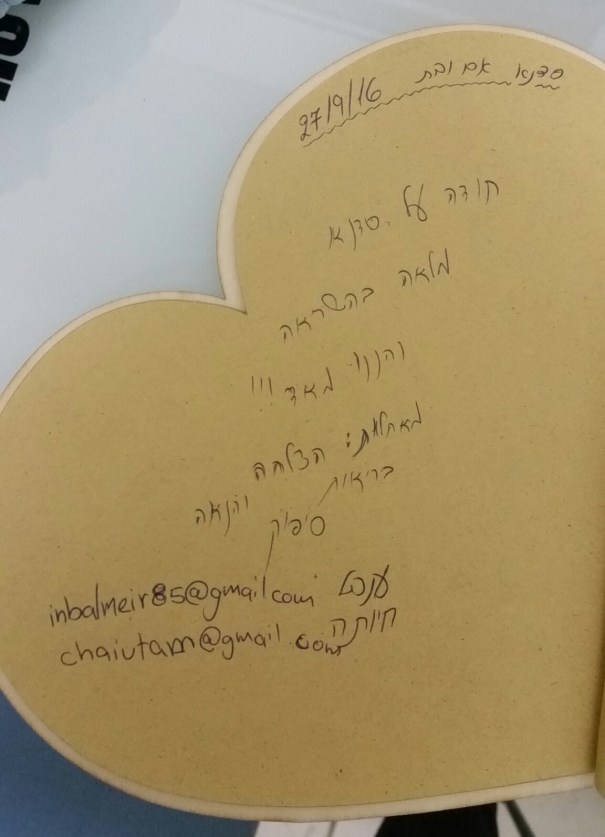 סדנא אם ובת 27/9/16
תודה על סדנא
מלאה בהשראה
ונהננו מאד!!!
מאחלות: הצלחה
בריאות והנאה
סיפוק
ענבל inbalmeir85@gmail.com
חיותה chaiutam@gmail.com